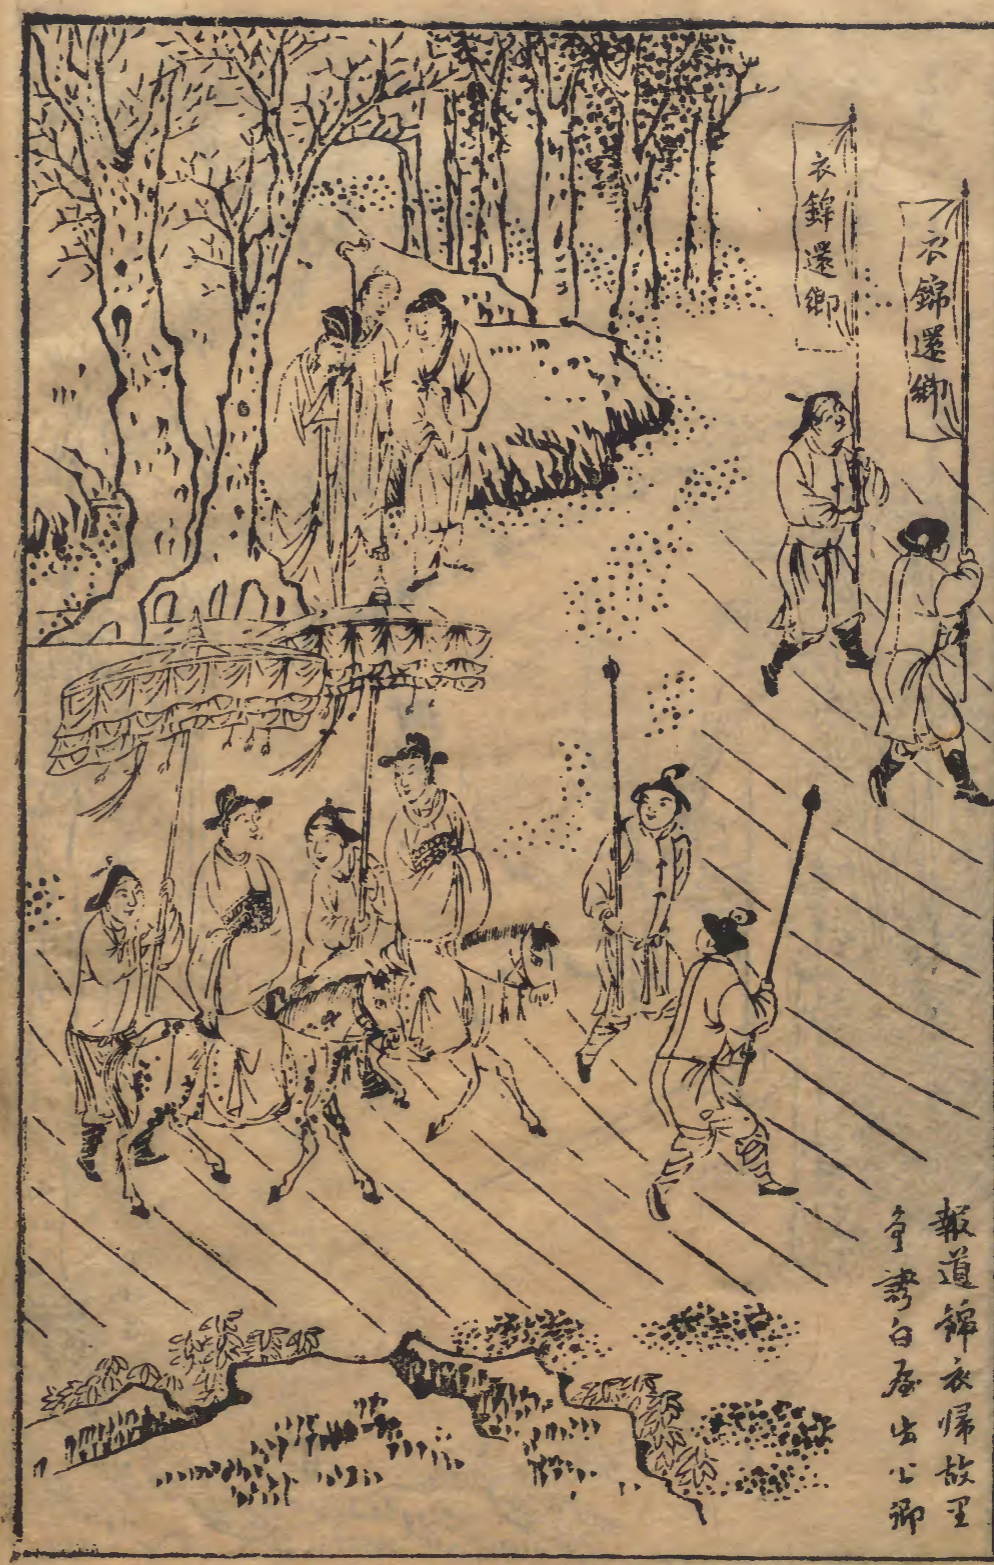 衣錦還鄉
衣錦還鄉
報道錦衣帰故里
争誇白屋出公卿